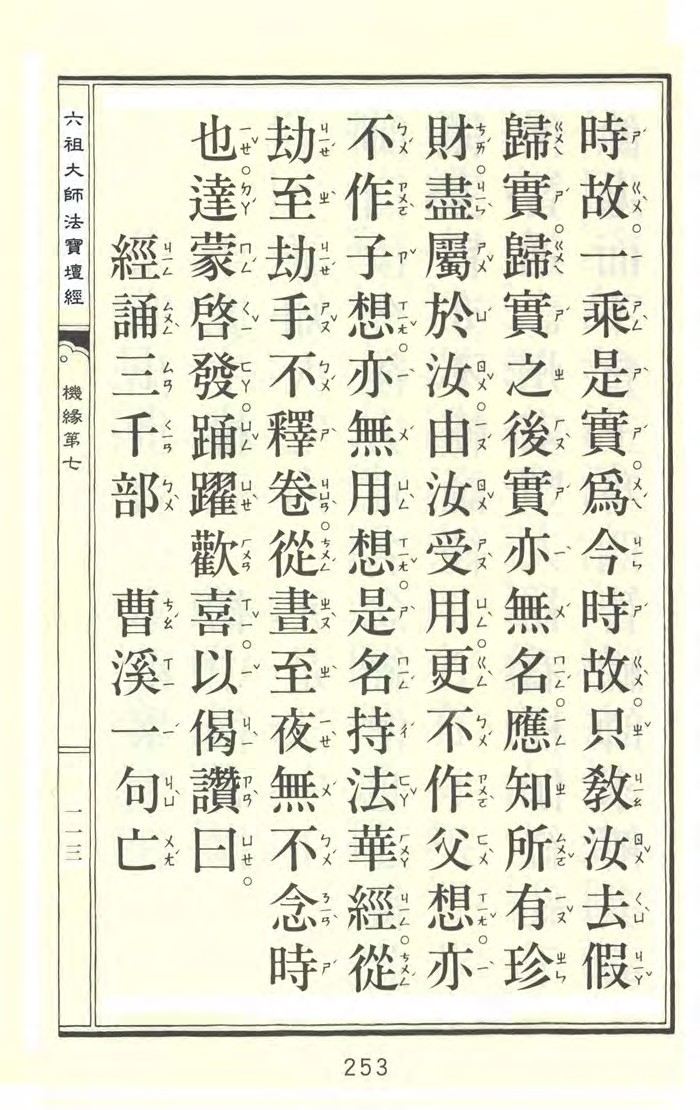 時故。一乘是實。爲今時故。只教汝去假
歸實。歸實之後實亦無名。應知所有珍
財。盡屬於汝。由汝受用。更不作父想。亦
不作子想。亦無用想。是名持法華經。從
劫至劫手不釋卷。從晝至夜無不念時
也。達蒙啓發。踊躍歡喜。以偈讚曰。
經誦三千部　曹溪一句亡
六祖大師法寶壇經
機緣第七
一一三
253